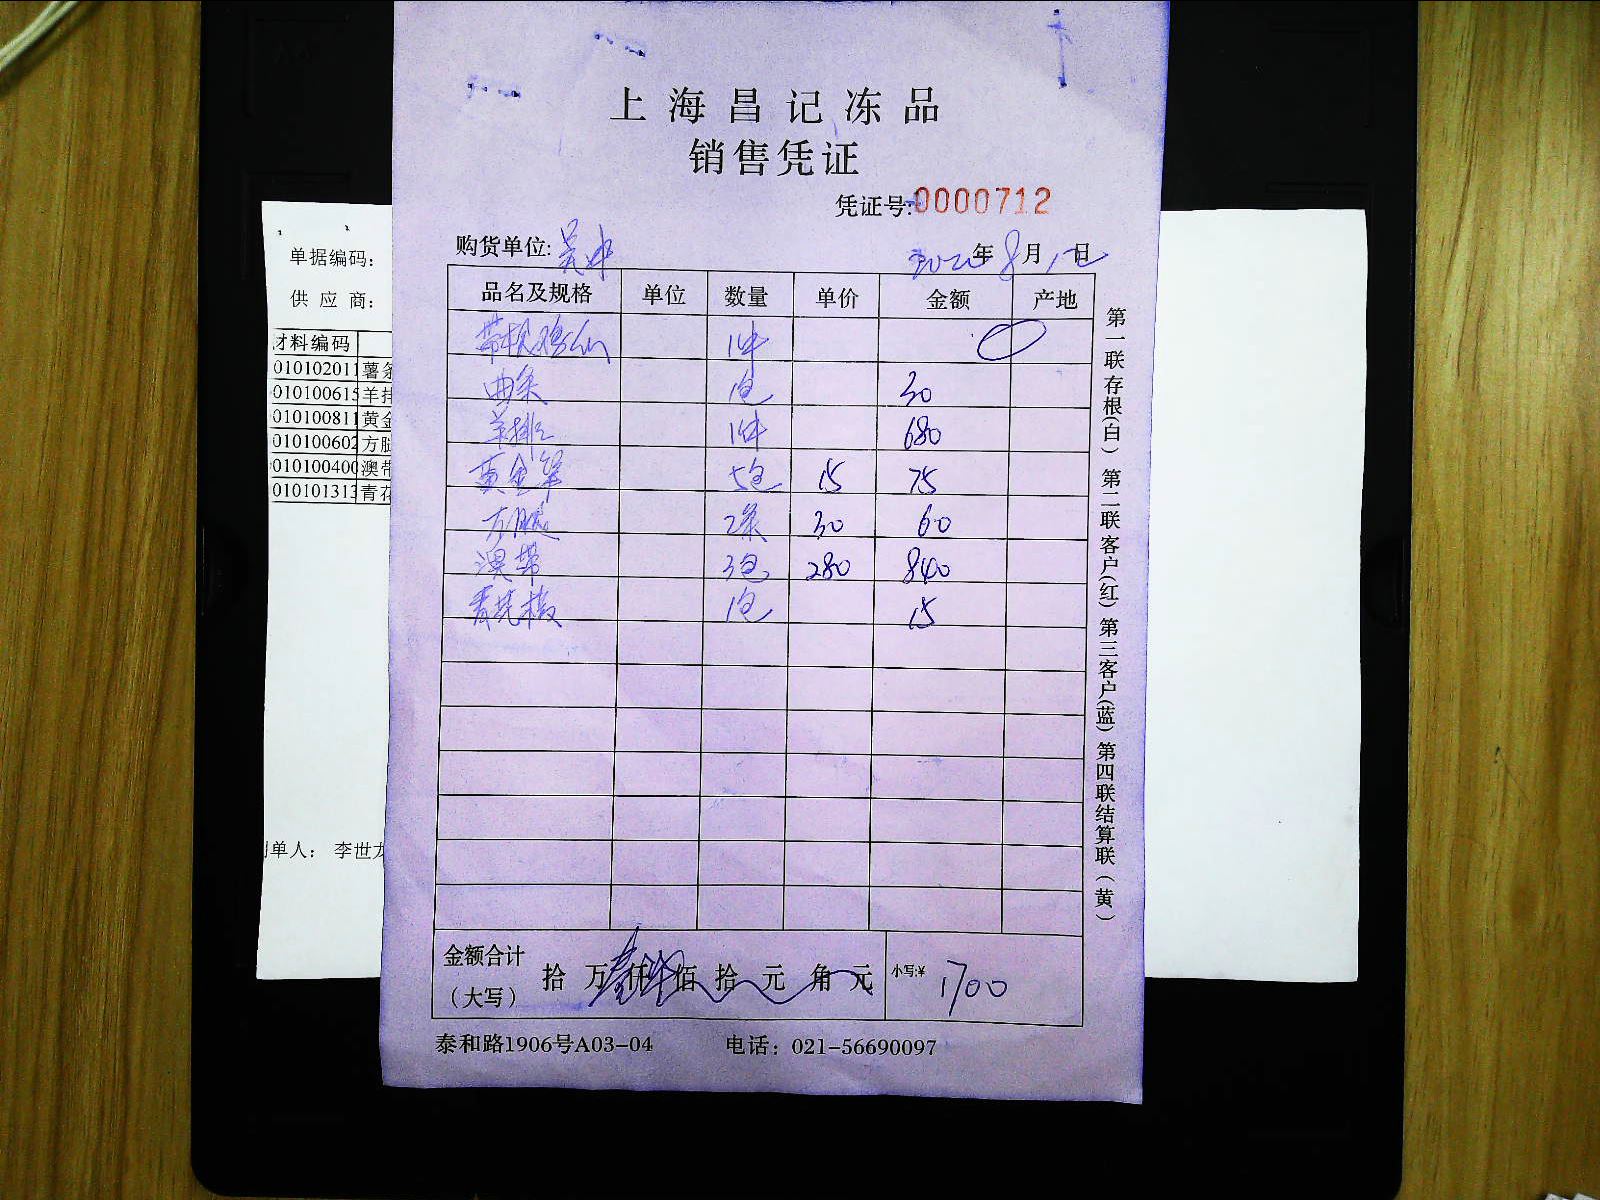 上海昌记冻品
销售凭证
凭证号:0000712
购货单位:
年8月 日
品名及规格 单位 数量 单价 金额 产地
1件
曲条 1包 30
羊排 1件 680
黄金 5包 15 75
方腿 2条 30 60
澳带 3包 280 840
青花椒 1包 15
金额合计
(大写) 拾万仟佰拾元角元 小写:¥ 1700
泰和路1906号A03-04 电话: 021-56690097
第一联存根(白) 第二联客户(红) 第三客户(蓝) 第四联结算联(黄)
单据编码:
供应商:
材料编码
010102011 薯条
010100615 羊排
010100811 黄金
010100602 方腿
010100400 澳带
010101313 青花
制单人: 李世龙